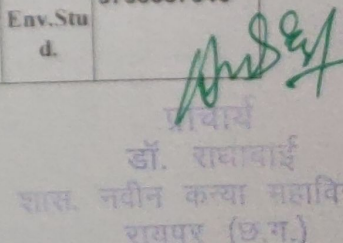 Env.Stu
d.
प्राचार्य
डॉ. राधाबाई
शास. नवीन कन्या महावि
रायपुर (छ.ग.)